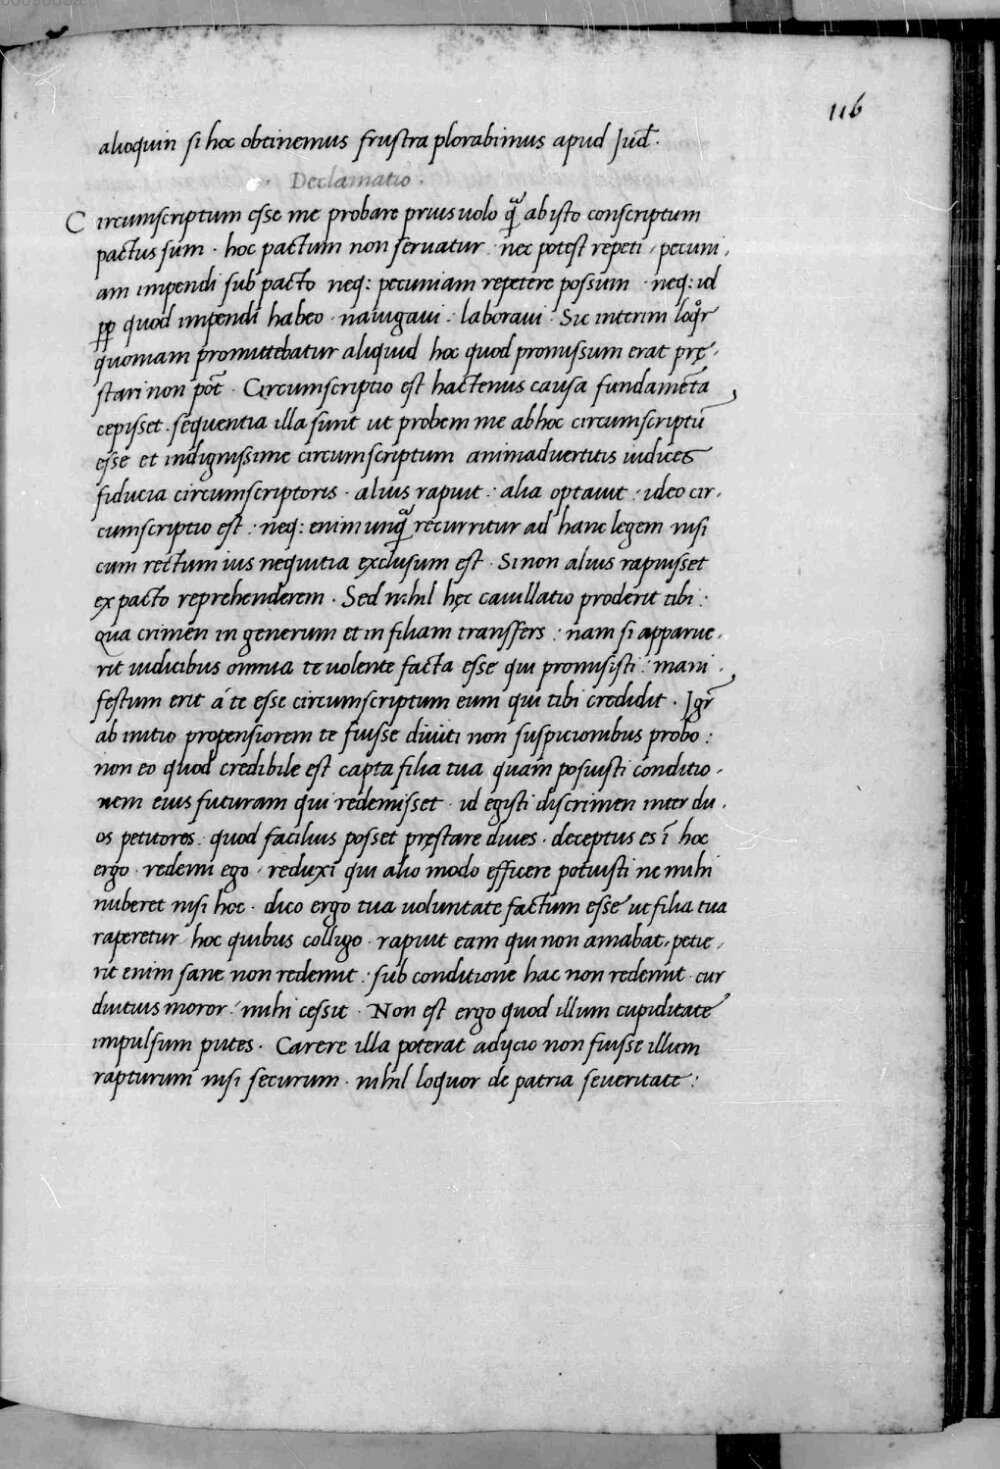 116
alioquin si hoc obtinemus frustra plorabimus apud Jud̃.
Declamatio.
Circumscriptum esse me probare prius uolo q̃ ab isto conscriptum
pactus sum. hoc pactum non seruatur. nec potest repeti, pecuni,
am impendi sub pacto neq: pecuniam repetere possum. neq: id
pp quod impendi habeo. nauigaui: laboraui. Sic interim loq̊r
quoniam promittebatur aliquid hoc quod promissum erat prę,
stari non põt. Circumscriptio est hactenus causa fundamẽta
cepisset. sequentia illa sunt ut probem me ab hoc circumscriptũ
esse et indignissime circumscriptum animaduertitis iudices
fiducia circumscriptoris. alius rapuit: alia optauit: ideo cir,
cumscriptio est: neq: enim unq̃ recurritur ad hanc legem nisi
cum rectum ius nequitia exclusum est. Si non alius rapuisset
ex pacto reprehenderem. Sed nihil hęc cauillatio proderit tibi:
qua crimen in generum et in filiam transfers: nam si apparue,
rit iudicibus omnia te uolente facta esse qui promisisti: mani,
festum erit á te esse circumscriptum eum qui tibi credidit. Jgr̃
ab initio propensiorem te fuisse diuiti non suspicionibus probo:
non eo quod credibile est capta filia tua quam posuisti conditio,
nem eius futuram qui redemisset. id egisti discrimen inter du,
os petitores. quod facilius posset pręstare diues. deceptus es ĩ hoc
ergo. redemi ego, reduxi qui alio modo efficere potuisti ne mihi
nuberet nisi hoc. dico ergo tua uoluntate factum esse ut filia tua
raperetur hoc quibus colligo. rapuit eam qui non amabat, petie,
rit enim sane non redemit: sub conditione hac non redemit. cur
diutius moror: mihi cessit. Non est ergo quod illum cupiditate
impulsum putes. Carere illa poterat adijcio non fuisse illum
rapturum nisi securum. nihil loquor de patria seueritate: